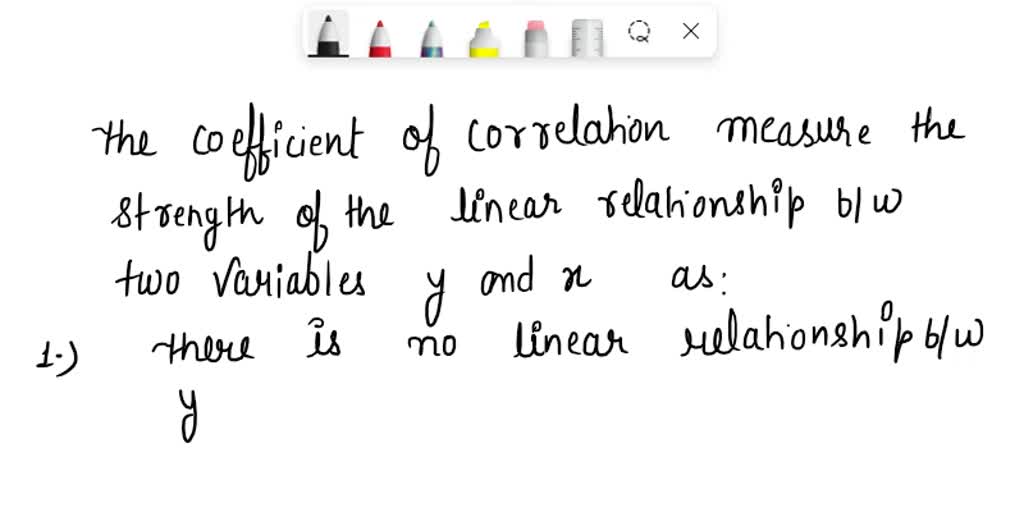 the coefficient of correlation measure the
strength of the linear relationship b/w
two variables y and x as:
1.) there is no linear relationship b/w
y